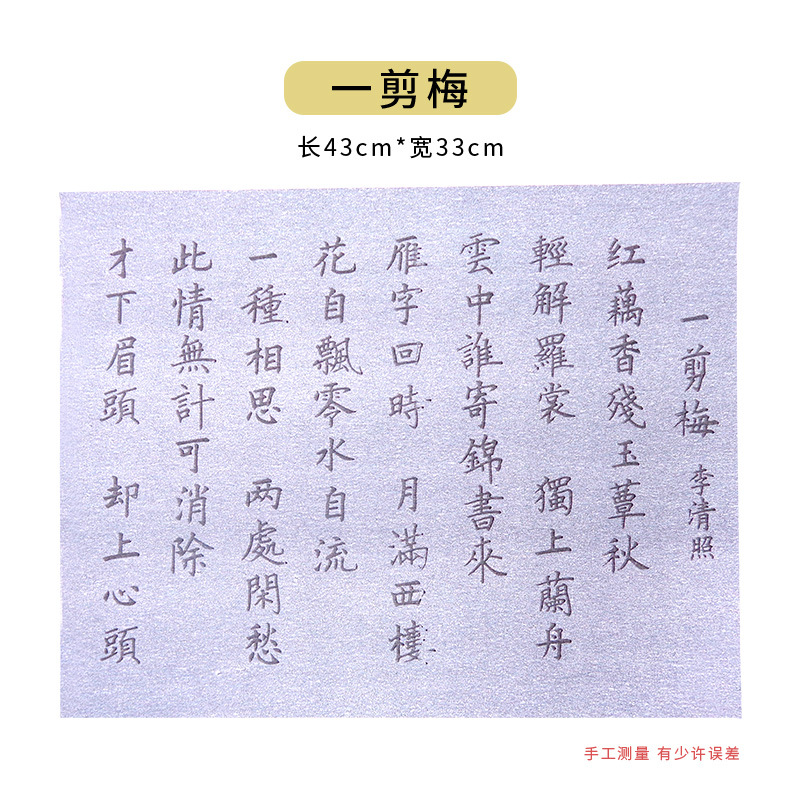 一剪梅
长43cm*宽33cm
一剪梅 李清照
红藕香殘玉蕈秋
輕解羅裳 獨上蘭舟
雲中誰寄錦書來
雁字回時 月滿西樓
花自飄零水自流
一種相思 两處閑愁
此情無計可消除
才下眉頭 却上心頭
手工测量 有少许误差